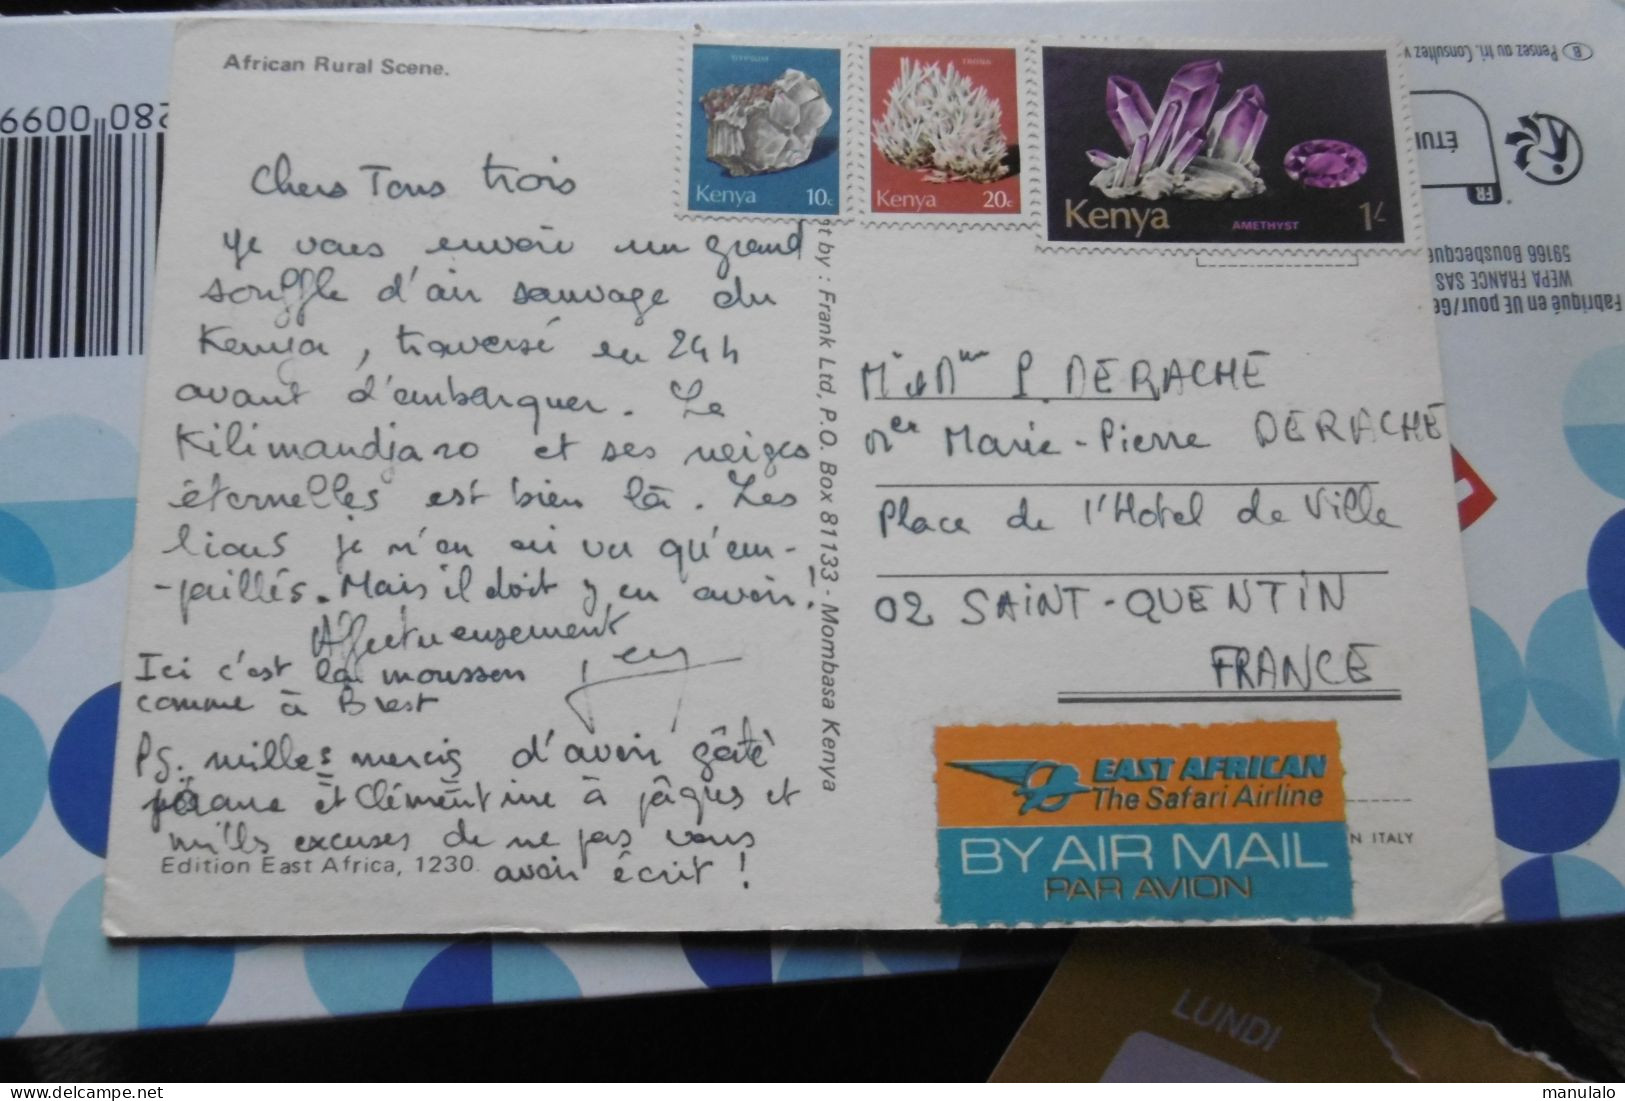 African Rural Scene.
GYPSUM
Kenya 10c
TRONA
Kenya 20c
Kenya AMETHYST 1/-
Chers Tous trois
Je vous envoie un grand
souffle d'air sauvage du
Kenya, traversé en 24h
avant d'embarquer. Le
Kilimandjaro et ses neiges
éternelles est bien là. Les
lions je n'en ai vu qu'em-
-paillés. Mais il doit y en avoir!
Affectueusement
Ici c'est la mousson
comme à Brest
PS. milles mercis d'avoir gâté
et Clémentine à pâques et
mills excuses de ne pas vous
avoir écrit !
Edition East Africa, 1230.
nt by : Frank Ltd, P.O. Box 81133 - Mombasa Kenya
Mr et Mme P. DERACHE
Marie-Pierre DERACHE
Place de l'Hotel de Ville
02 SAINT-QUENTIN
FRANCE
EAST AFRICAN
The Safari Airline
BY AIR MAIL
PAR AVION
N ITALY
280 00099
Pensez au tri. Consultez v
ÉTUI
FR
59166 Bousbecque
WEPA FRANCE SAS
Fabriqué en UE pour/Ge
LUNDI
manulalo